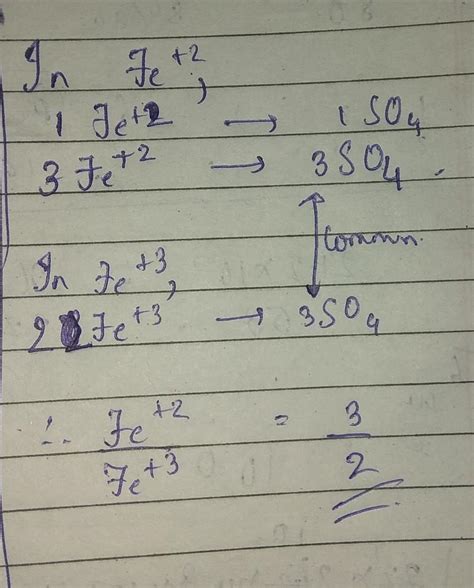 In Fe+2,
1 Fe+2 → 1 SO4
3 Fe+2 → 3SO4.
Common.
In Fe+3,
2 Fe+3 → 3SO4
∴ Fe+2 / Fe+3 = 3 / 2